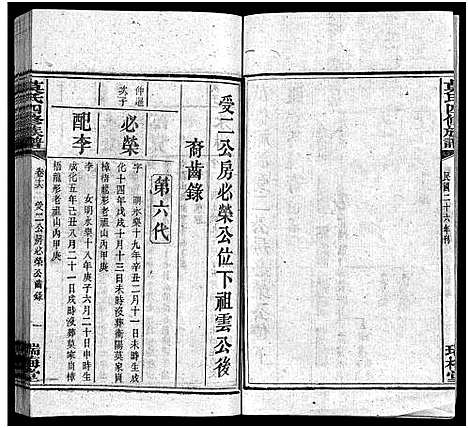 莫氏四修族譜
民國二十六年刊
受二公房必榮公位下祖雲公後
裔齒錄
第六代
仲選
次子
必榮
字 明永樂十九年辛丑二月十一日未時生成
化十四年戊戌十月十三日未時沒葬衡陽莫家園
樟梧龍形老祖山內甲庚
配李
李 女明永樂十八年庚子六月二十日申時生
成化五年己丑八月二十一日戌時沒葬莫家山樟
梧龍形老祖山內甲庚
莫氏四修族譜
卷十六
受二公房必榮公齒錄
一